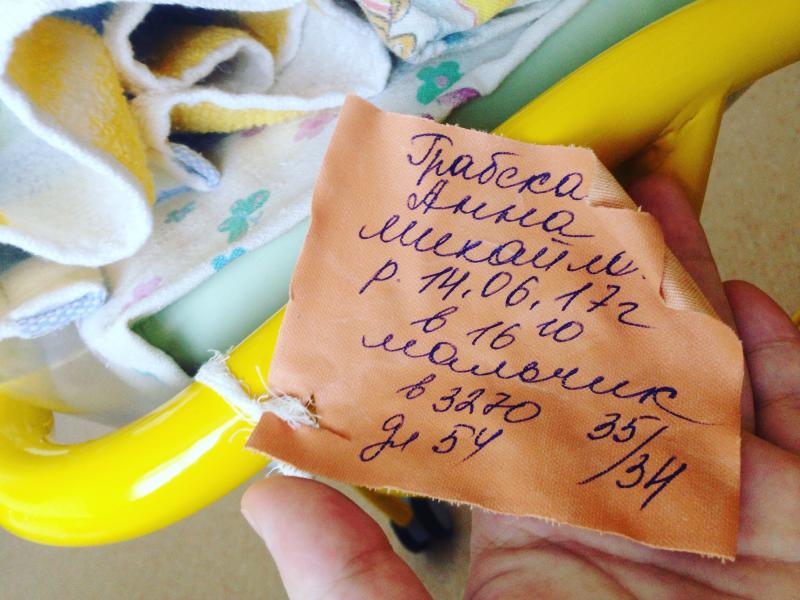 Грабска
Анна
Михайл.
р. 14.06.17г
в 16 10
мальчик
в 3270 35/34
дл 54